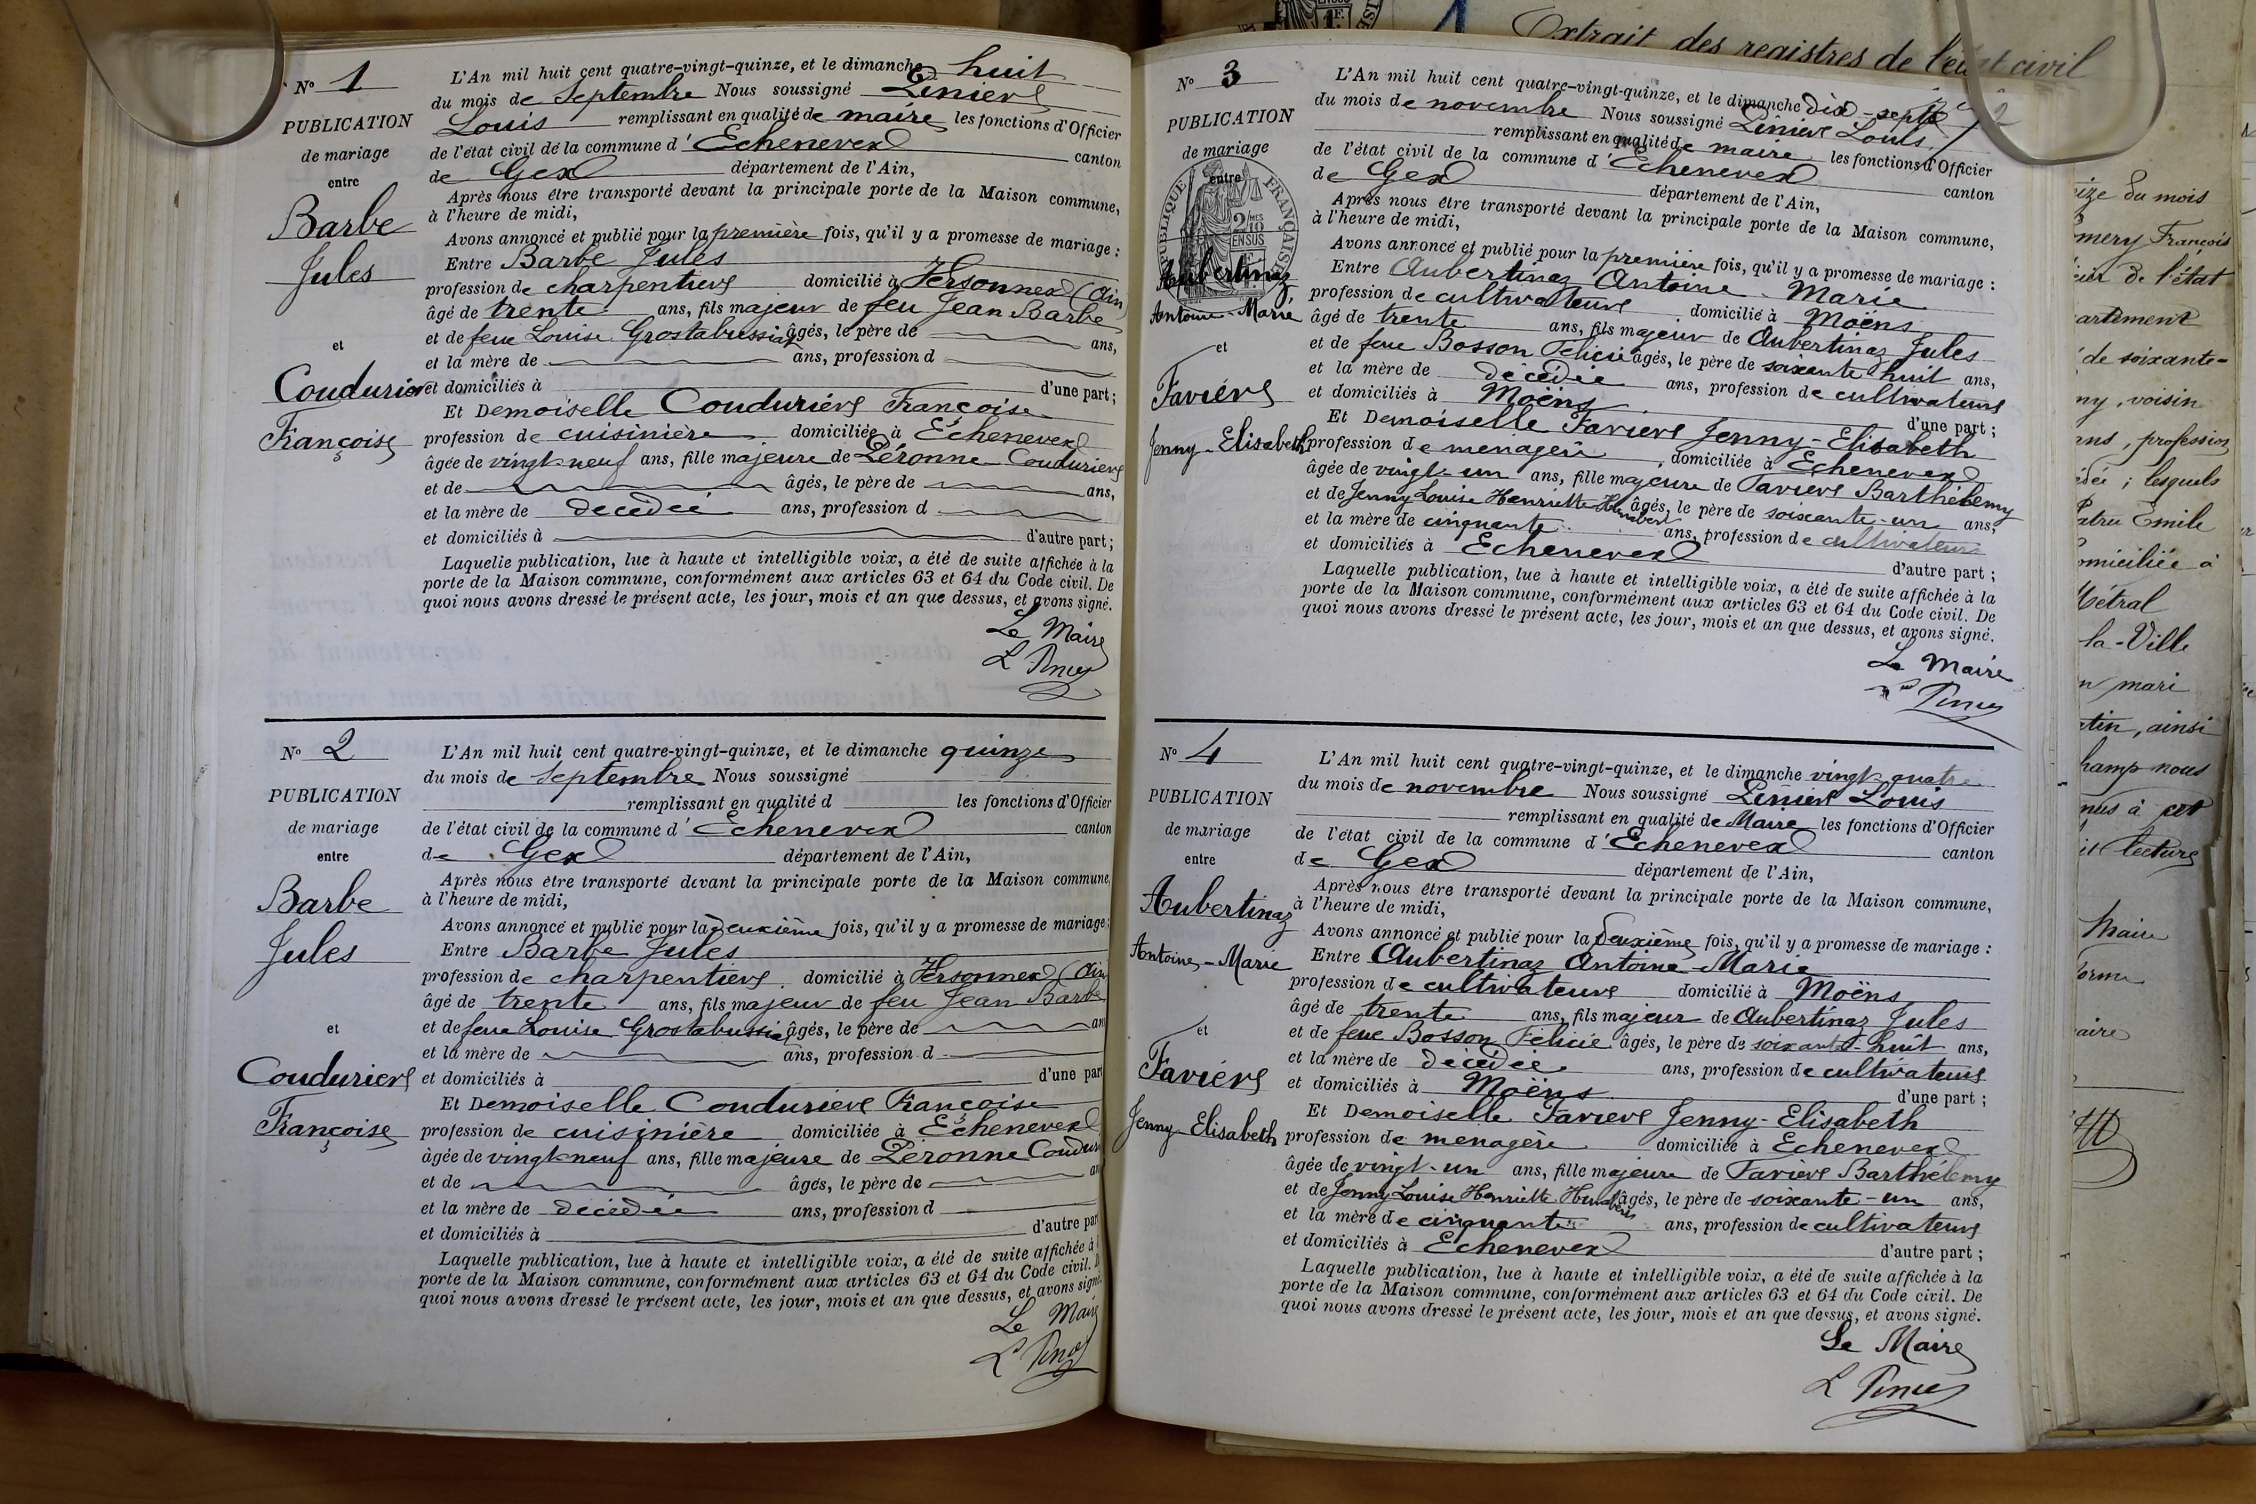 Nº 1
PUBLICATION
de mariage
entre
Barbe
Jules
et
Condurier
Françoise
L'An mil huit cent quatre-vingt-quinze, et le dimanche huit
du mois de Septembre Nous soussigné
Louis remplissant en qualité de maire les fonctions d'Officier
de l'état civil de la commune d'Echenevex canton
de Gex département de l'Ain,
Après nous être transporté devant la principale porte de la Maison commune,
à l'heure de midi,
Avons annoncé et publié pour la première fois, qu'il y a promesse de mariage :
Entre Barbe Jules
profession de charpentier domicilié à Versonnex (Ain)
âgé de trente ans, fils majeur de feu Jean Barbe
et de feue Louise âgés, le père de ans,
et la mère de ans, profession d
et domiciliés à d'une part ;
Et Demoiselle Condurier Françoise
profession de cuisinière domiciliée à Echenevex
âgée de vingt-neuf ans, fille majeure de Péronne Condurier
et de âgés, le père de ans,
et la mère de décédée ans, profession d
et domiciliés à d'autre part ;
Laquelle publication, lue à haute et intelligible voix, a été de suite affichée à la
porte de la Maison commune, conformément aux articles 63 et 64 du Code civil. De
quoi nous avons dressé le présent acte, les jour, mois et an que dessus, et avons signé.
Le Maire
Nº 2
PUBLICATION
de mariage
entre
Barbe
Jules
et
Condurier
Françoise
L'An mil huit cent quatre-vingt-quinze, et le dimanche quinze
du mois de Septembre Nous soussigné
remplissant en qualité d les fonctions d'Officier
de l'état civil de la commune d'Echenevex canton
de Gex département de l'Ain,
Après nous être transporté devant la principale porte de la Maison commune,
à l'heure de midi,
Avons annoncé et publié pour la deuxième fois, qu'il y a promesse de mariage :
Entre Barbe Jules
profession de charpentier domicilié à Versonnex (Ain
âgé de trente ans, fils majeur de feu Jean Barbe
et de feue Louise âgés, le père de an
et la mère de ans, profession d
et domiciliés à d'une part
Et Demoiselle Condurier Françoise
profession de cuisinière domiciliée à Echenevex
âgée de vingt-neuf ans, fille majeure de Péronne
et de âgés, le père de an
et la mère de décédée ans, profession d
et domiciliés à d'autre par
Laquelle publication, lue à haute et intelligible voix, a été de suite affichée à
porte de la Maison commune, conformément aux articles 63 et 64 du Code civil. D
quoi nous avons dressé le présent acte, les jour, mois et an que dessus, et avons signé.
Le Maire
Nº 3
PUBLICATION
de mariage
entre
Aubertinaz
Antoine-Marie
et
Favier
Jenny-Elisabeth
L'An mil huit cent quatre-vingt-quinze, et le dimanche dix-sept
du mois de novembre Nous soussigné Louis
remplissant en qualité de maire les fonctions d'Officier
de l'état civil de la commune d'Echenevex canton
de Gex département de l'Ain,
Après nous être transporté devant la principale porte de la Maison commune,
à l'heure de midi,
Avons annoncé et publié pour la première fois, qu'il y a promesse de mariage :
Entre Aubertinaz Antoine-Marie
profession de cultivateur domicilié à Moëns
âgé de trente ans, fils majeur de Aubertinaz Jules
et de feue Bosson Félicie âgés, le père de soixante huit ans,
et la mère de décédée ans, profession de cultivateur
et domiciliés à Moëns d'une part ;
Et Demoiselle Favier Jenny-Elisabeth
profession de menagère domiciliée à Echenevex
âgée de vingt-un ans, fille majeure de Favier Barthélemy
et de Jenny Louise Henriette Humbert âgés, le père de soixante-un ans,
et la mère de cinquante ans, profession de cultivateur
et domiciliés à Echenevex d'autre part ;
Laquelle publication, lue à haute et intelligible voix, a été de suite affichée à la
porte de la Maison commune, conformément aux articles 63 et 64 du Code civil. De
quoi nous avons dressé le présent acte, les jour, mois et an que dessus, et avons signé.
Le Maire
Nº 4
PUBLICATION
de mariage
entre
Aubertinaz
Antoine-Marie
et
Favier
Jenny Elisabeth
L'An mil huit cent quatre-vingt-quinze, et le dimanche vingt-quatre
du mois de novembre Nous soussigné Louis
remplissant en qualité de Maire les fonctions d'Officier
de l'état civil de la commune d'Echenevex canton
de Gex département de l'Ain,
Après nous être transporté devant la principale porte de la Maison commune,
à l'heure de midi,
Avons annoncé et publié pour la deuxième fois, qu'il y a promesse de mariage :
Entre Aubertinaz Antoine-Marie
profession de cultivateur domicilié à Moëns
âgé de trente ans, fils majeur de Aubertinaz Jules
et de feue Bosson Félicie âgés, le père de soixante-huit ans,
et la mère de décédée ans, profession de cultivateur
et domiciliés à Moëns d'une part ;
Et Demoiselle Favier Jenny-Elisabeth
profession de menagère domiciliée à Echenevex
âgée de vingt-un ans, fille majeure de Favier Barthélemy
et de Jenny Louise Henriette Humbert âgés, le père de soixante-un ans,
et la mère de cinquante ans, profession de cultivateur
et domiciliés à Echenevex d'autre part ;
Laquelle publication, lue à haute et intelligible voix, a été de suite affichée à la
porte de la Maison commune, conformément aux articles 63 et 64 du Code civil. De
quoi nous avons dressé le présent acte, les jour, mois et an que dessus, et avons signé.
Le Maire
Extrait des registres de l'état civil
du mois
François
de l'état
de soixante-
voisin
profession
lesquels
Emile
domiciliée à
Métral
la-Ville
mari
ainsi
nous
à cet
lecture